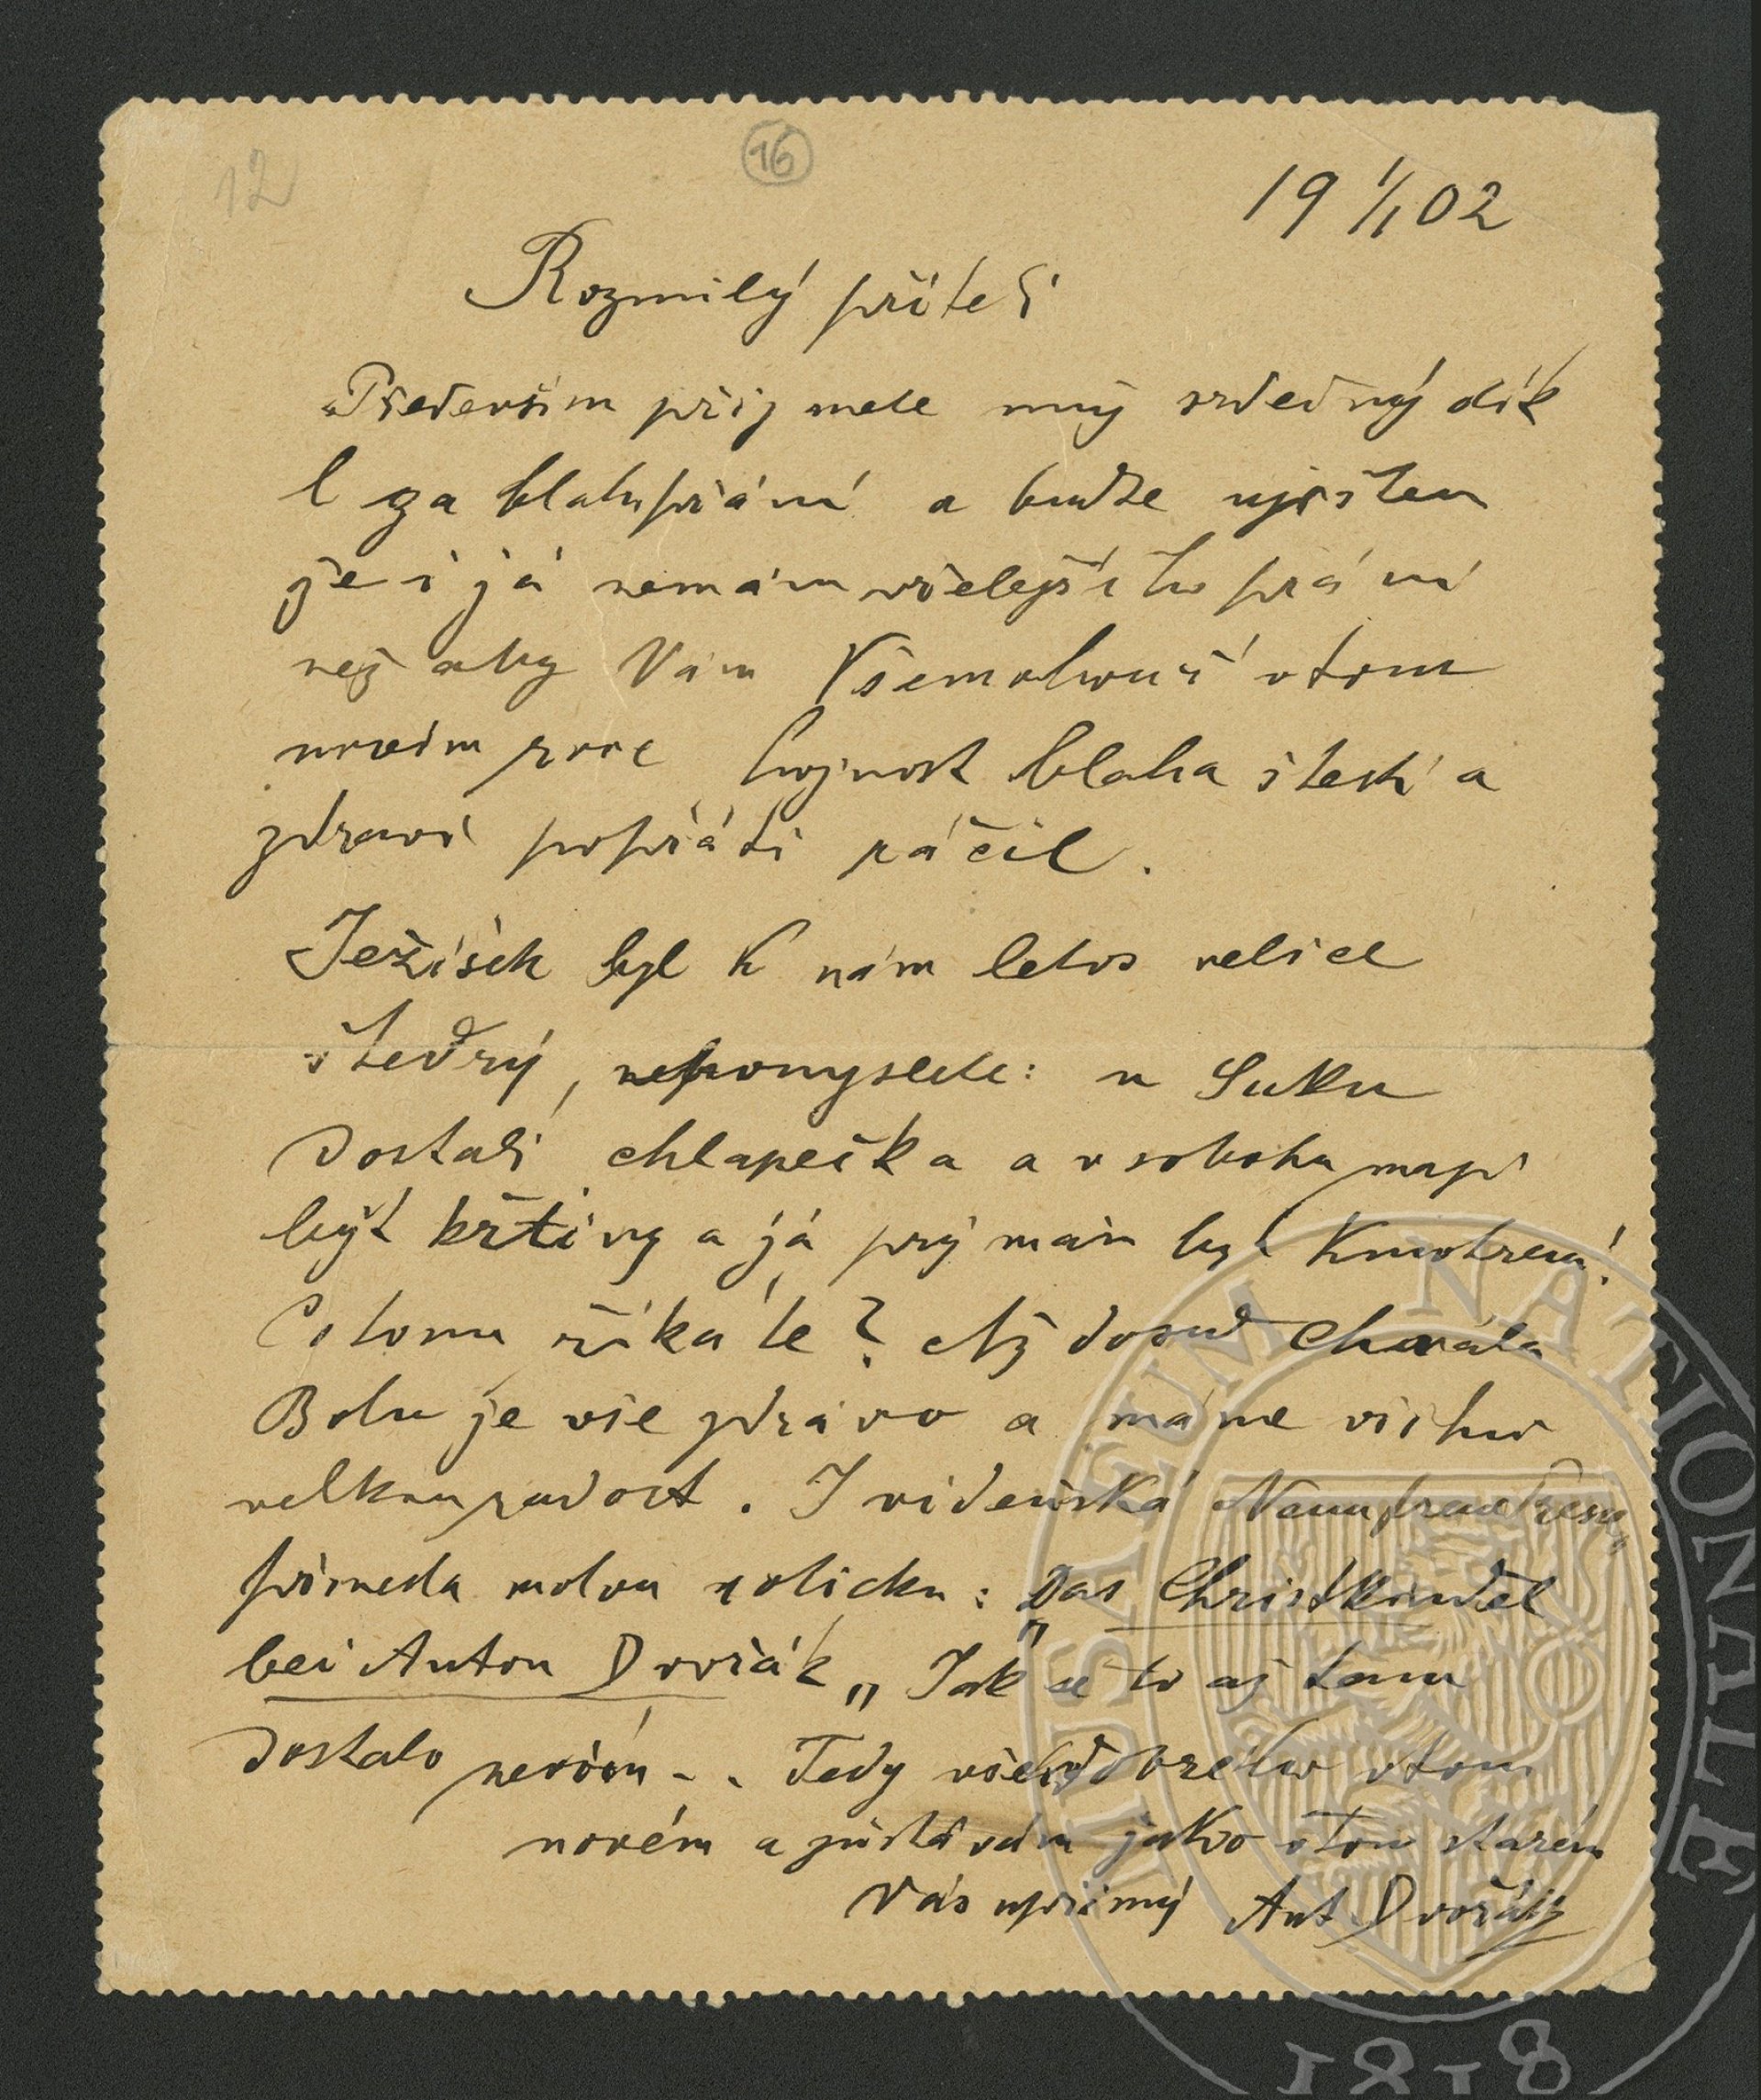 12
16
19 1/1 02
Rozmilý příteli
Především přijmete můj srdečný dík
za blahopřání a buďte ujištěn
že i já nemám vřelejšího přání
než aby Vám Všemohoucí v tom
novém roce hojnost blaha štestí a
zdraví popřáti ráčil.
Ježíšek byl k nám letos velice
štedrý, nepomyslete: u Suku
dostali chlapečka a v sobotu mají
být křtiny a já prý mám být Kmotrem!
Co tomu říkáte? Až dosud chvála
Bohu je vše zdrávo a máme všichni
velkou radost. I videnská Neue freie Presse
přinesla malou rolicku: „Das Christkindel
bei Anton Dvořák„ Jak se to až tam
dostalo nevím - . Tedy všeho dobrého v tom
novém a zůstávám jako v tom starém
Vás upřímný Ant Dvořák
MUSAEUM NATIONALE
1818